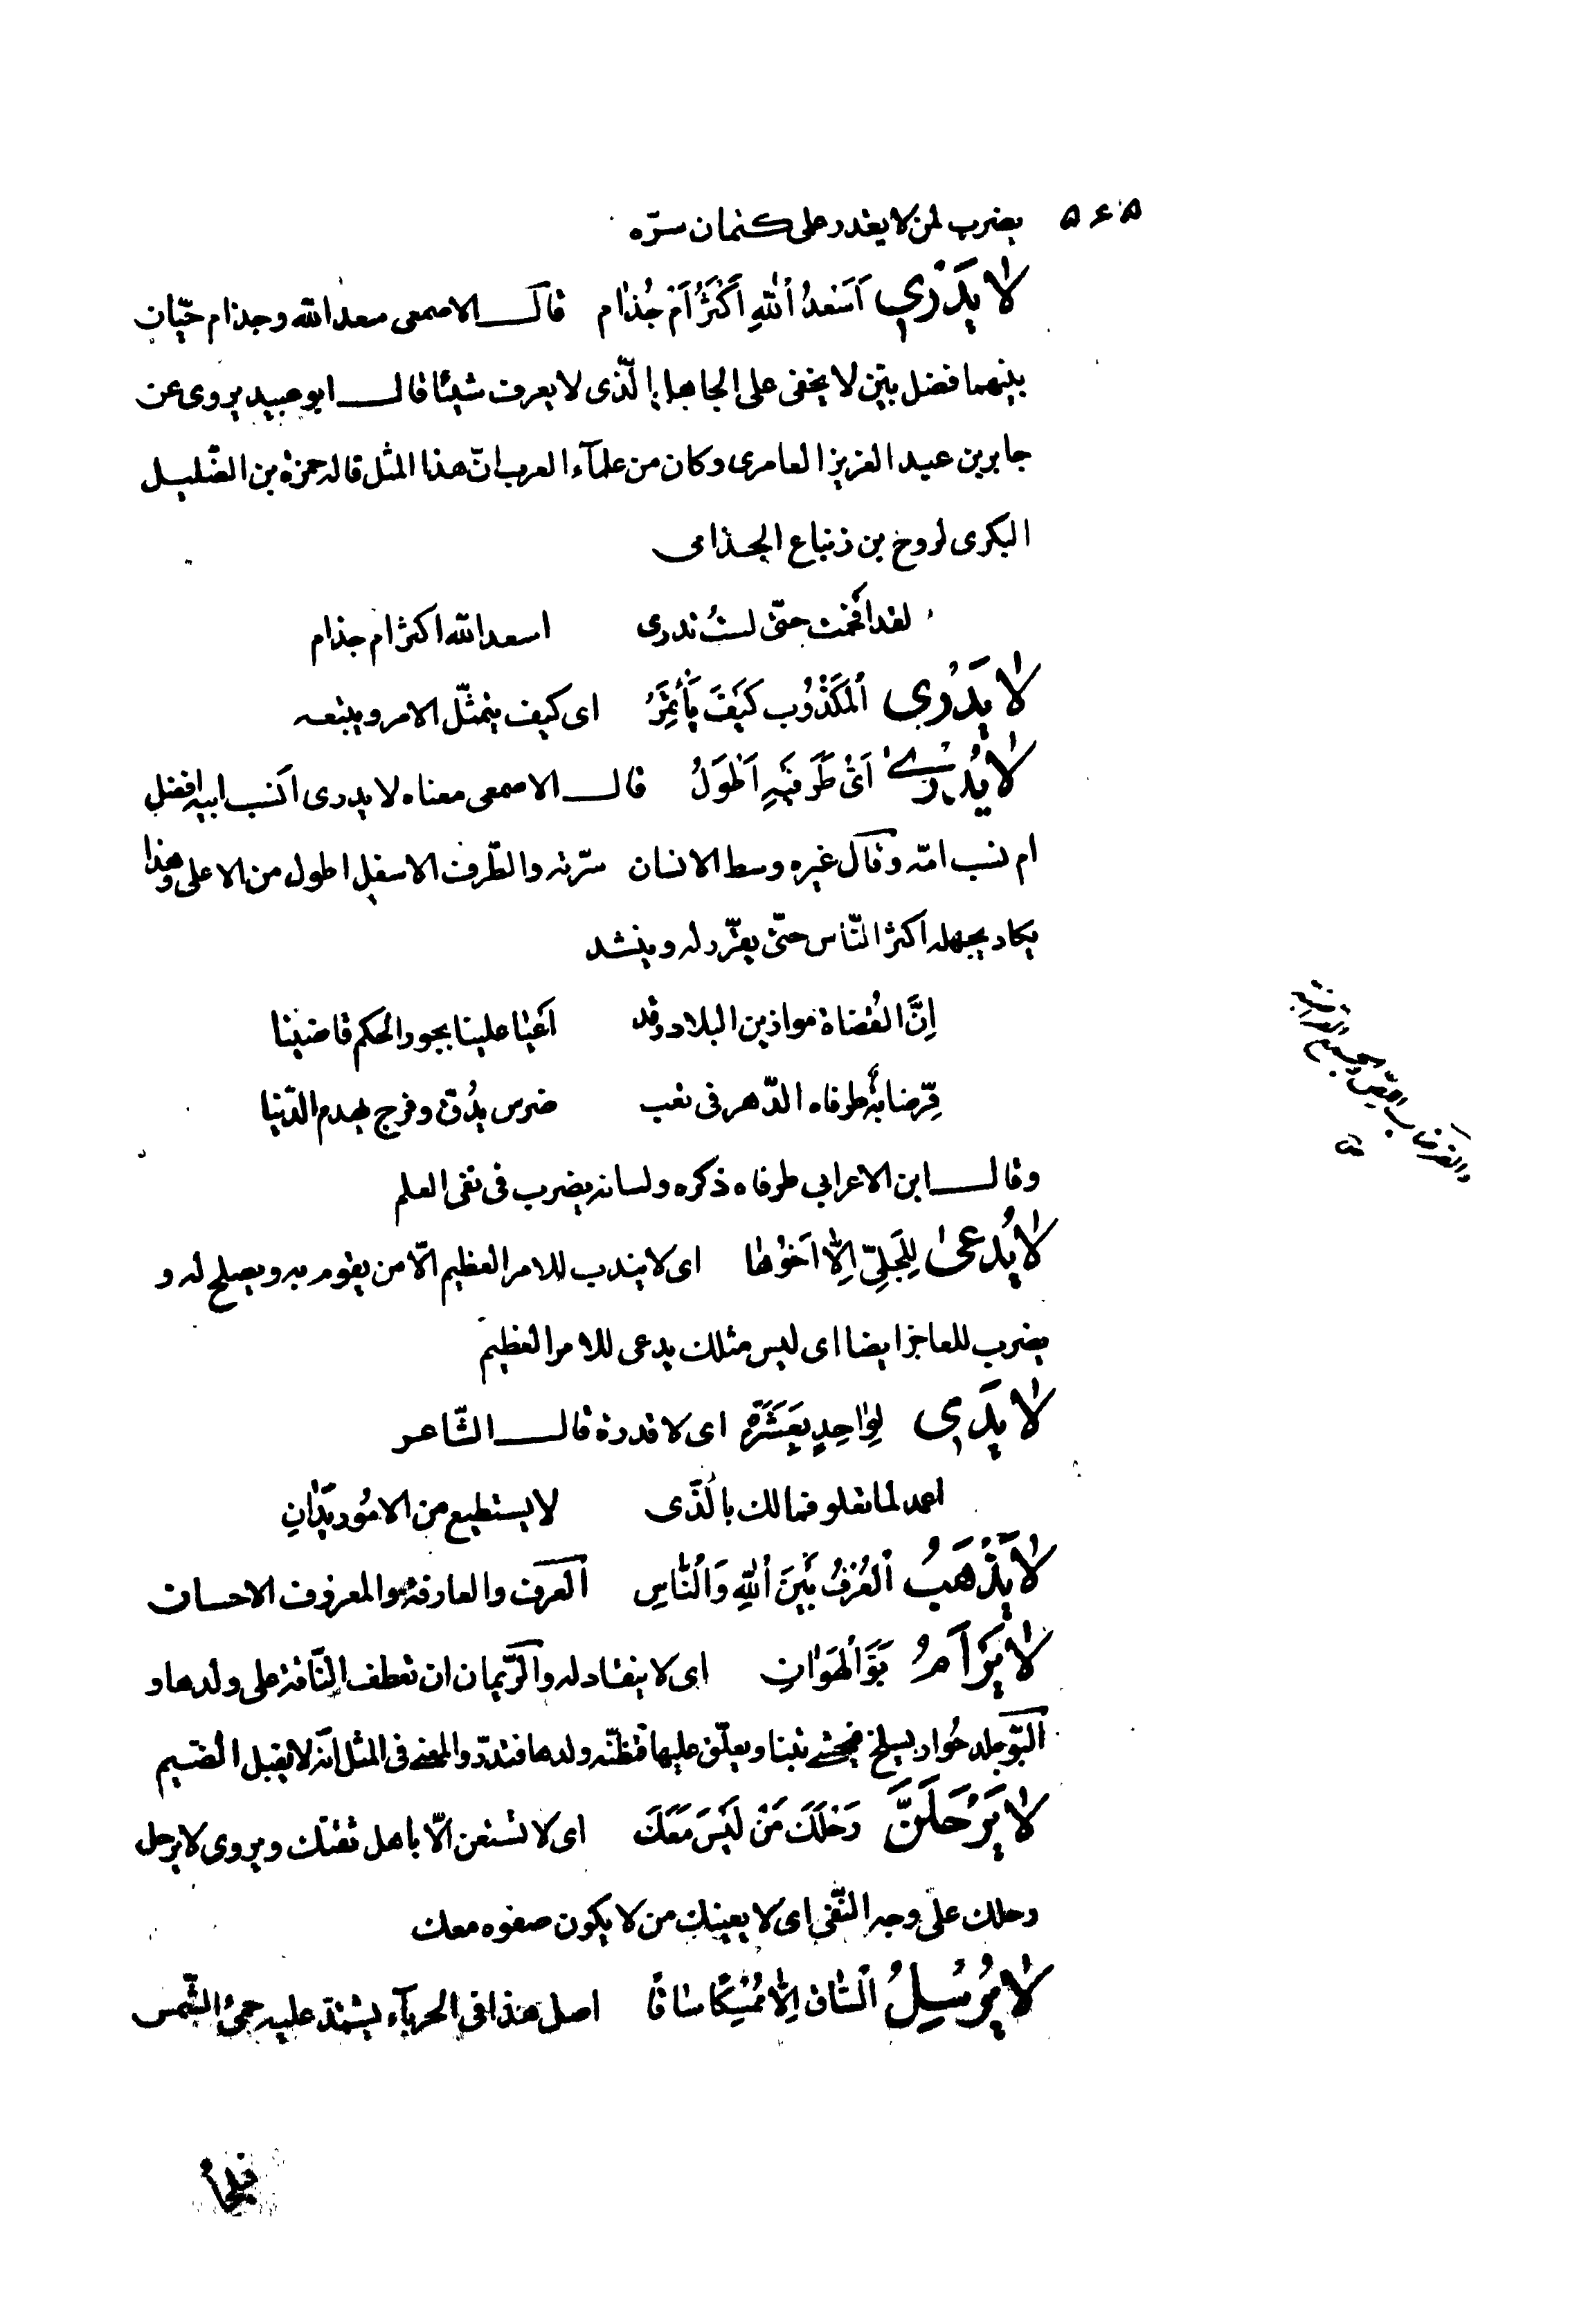 ۵۶۵
يضرب لمن لا يقدر على كتمان سرّه
لا يَدْرِي اَسَعْدُ اُللّٰهِ اَكْثَرُ اَمْ جُذام قالــ الاصمعى سعد الله وجذام حيّان
بينهما فضل بيّن لا يخفى على الجاهل الّذى لا يعرف شيئا قالــ ابو عبيد يروى عن
جابر بن عبد العزيز العامرى وكان من علمآء العرب انّ هذا المثل قاله حمزة بن الضّليل
البكرى لروح بن زنباع الجذامى
لقد افحمت حتّى لستُ تدرى اسعد الله اكثر ام جذام
لا يَدْرى اُلمَكْذُوب كَيْفَ يَأْتَمِرُ اى كيف يتمثّل الامر ويتبعه
لا يُدْرىٰ اَىُّ طَرَفَيْهِ اَطْوَلُ قالــ الاصمعى معناه لا يدرى انسب ابيه افضل
ام نسب امّه وقال غيره وسط الانسان سرّته والطّرف الاسفل اطول من الاعلى وهذا
يكاد يجهله اكثر النّاس حتّى يقرّر له وينشد
اِنَّ القُضاة موازين البلاد وقد اَعْيا علينا بجور الحكم قاضينا
قِرّضابةٌ طرفاه الدّهر فى تعب ضرس يدُقّ وفرج يهدم الدّينا
وقالــ ابن الاعرابى طرفاه ذكره ولسانه يضرب فى نفى العلم
لا يُدعىٰ لِلجُلّىٰ اِلّا اَخُوْها اى لا يندب للامر العظيم الّا من يقوم به ويصلح له و
يضرب للعاجز ايضا اى ليس مثلك يدعى للامر العظيم
لا يَدَىْ لِوٰاحِدٍ بِعَشَرَةٍ اى لا قدرة قالــ الشّاعر
اعمد لما تعلو فمالك بالّذى لا يستطيع من الامُور يَدٰانِ
لا يَذْهَبُ اُلعُرْفُ بَيْنَ اُللّٰهِ وَاُلنّاسِ العرف والعارفة والمعروف الاحسان
لا يَرْأَمُ بَوَّ اُلهَوٰانِ اى لا ينقاد له والرّيمان ان تعطف النّاقة على ولدها و
البّو جلد حُوار يسلخ فيحشى تبنا ويعلّق عليها فتظنّه ولدها فتدرّ والمعنى فى المثل انّه لا يقبل الضّيم
لا يَرْحَلَنَّ رَحْلَكَ مَنْ لَيْسَ مَعَكَ اى لا تستعن الّا باهل ثقتك ويروى لا يرحل
رحلك على وجه النّفى اى لا يعينك من لا يكون صفوه معك
لا يُرْسِلُ اُلسّاقَ اِلّا مُمْسِكًا سٰاقًا اصل هذا فى الحربآء يشتدّ عليه حمىُ الشّمس
فيلجأ